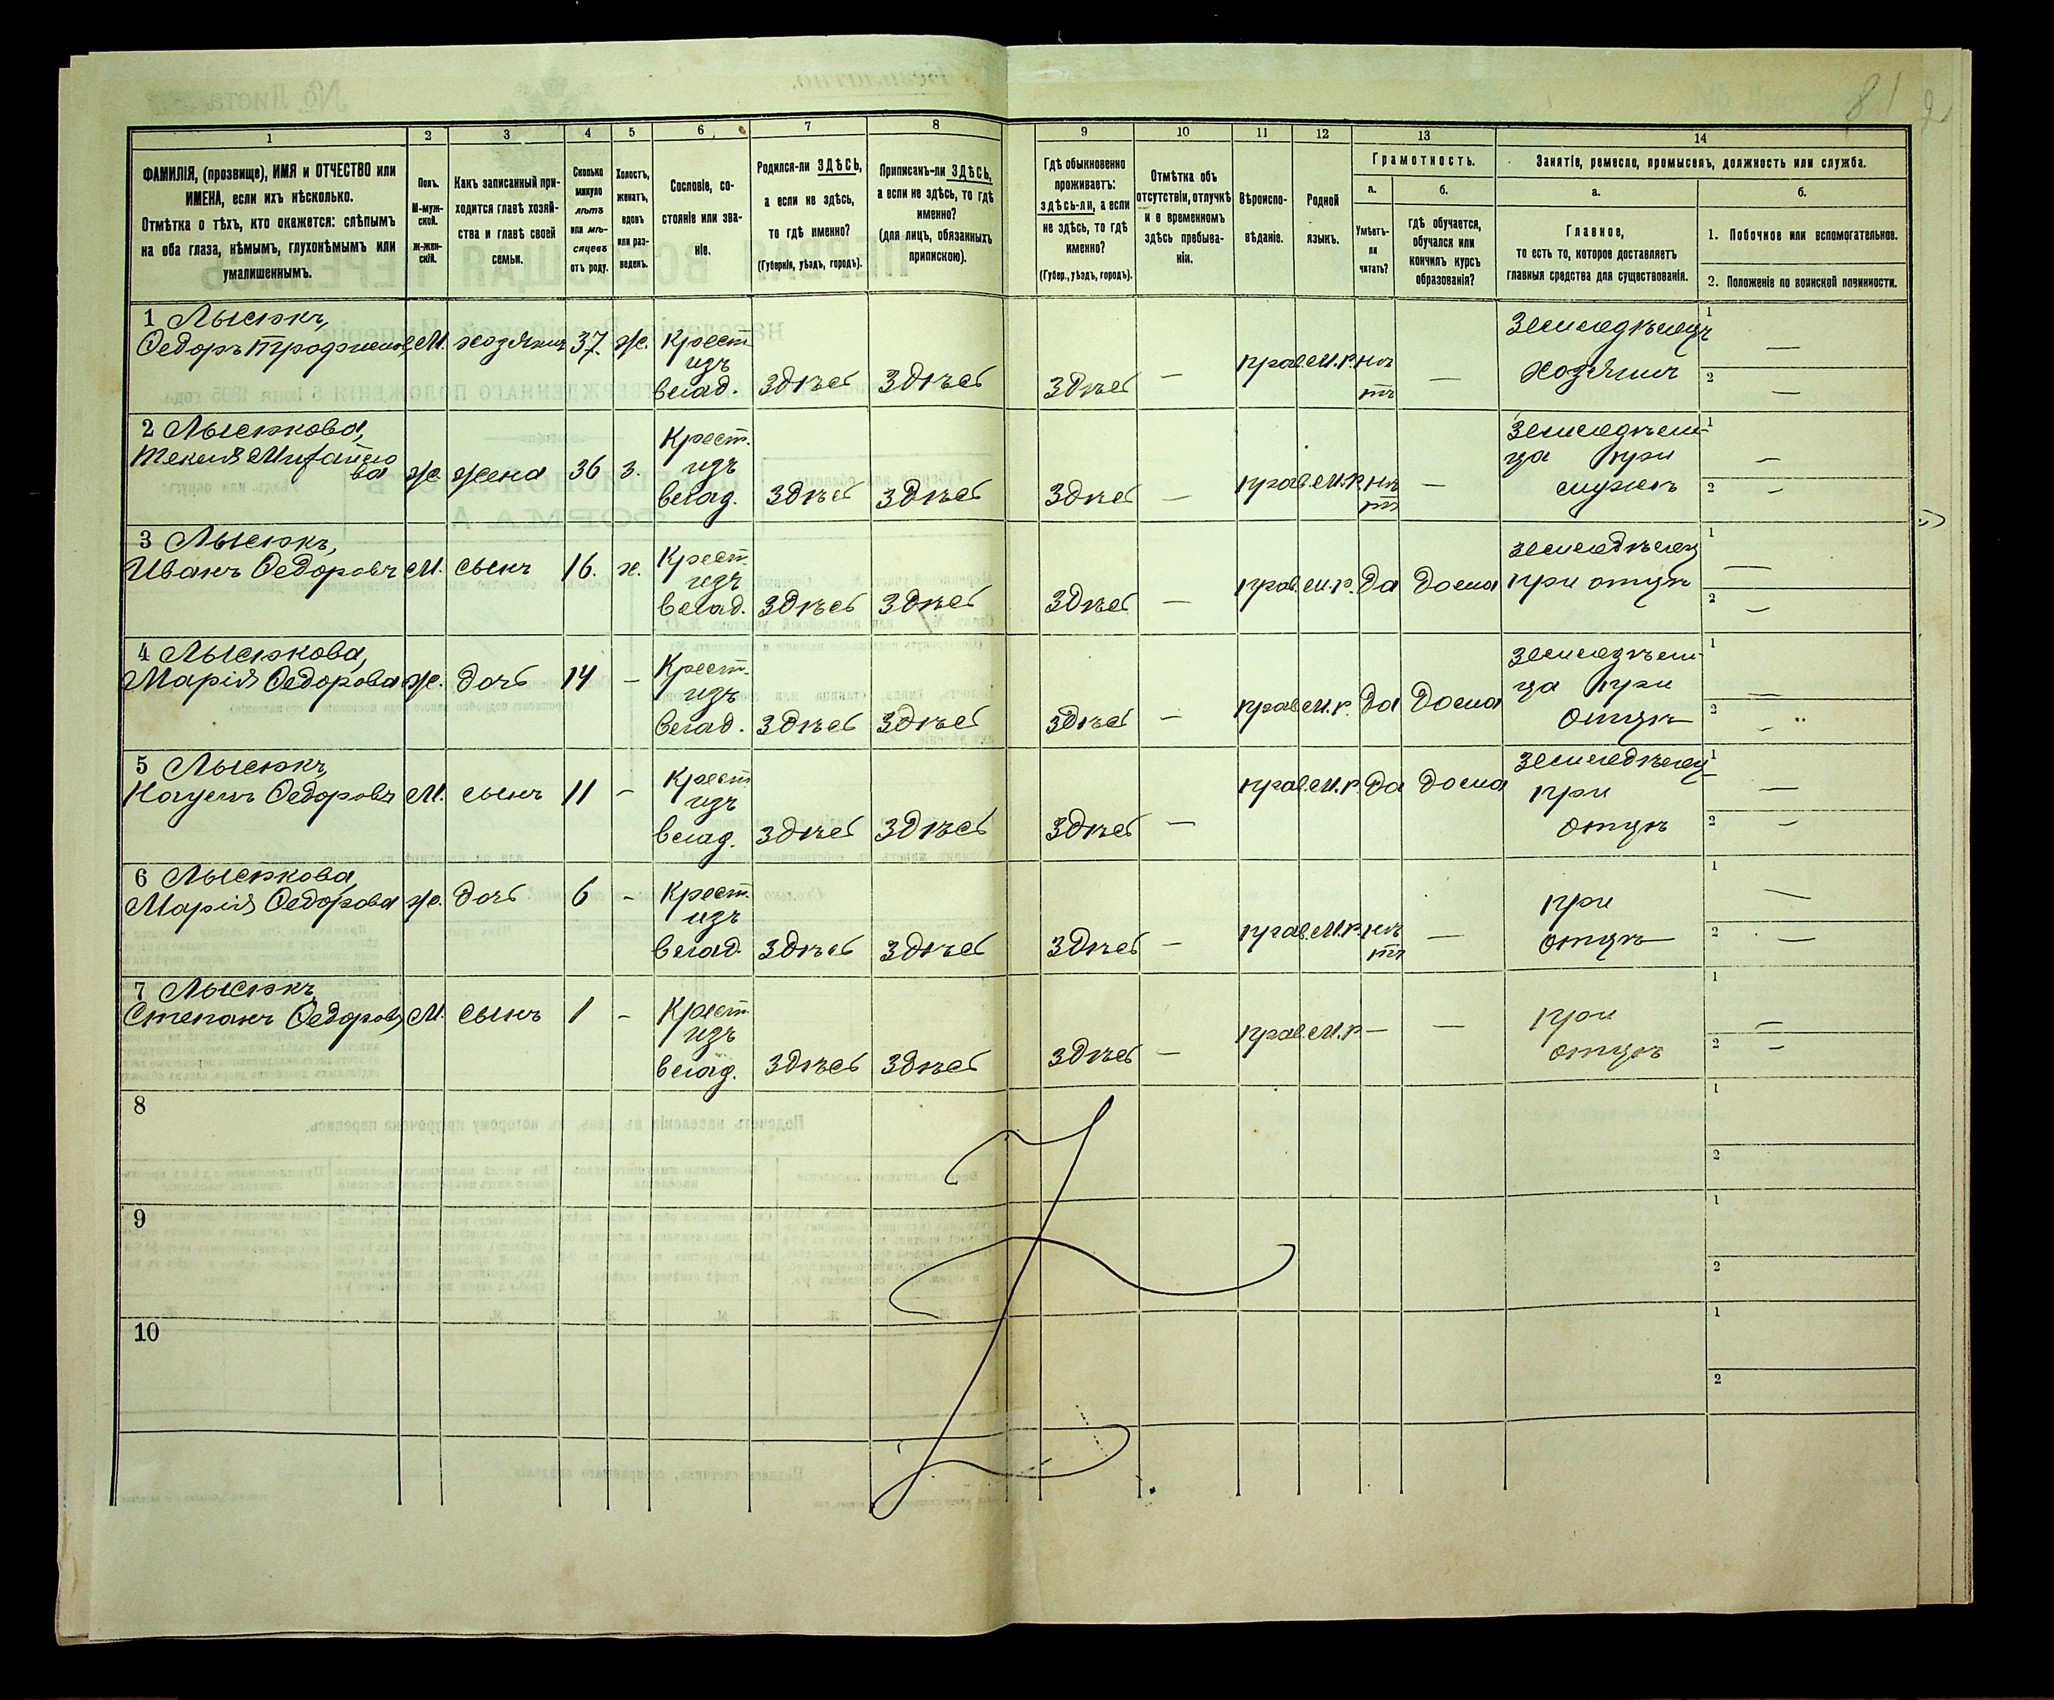 81
1
2
3
4
5
6
7
8
9
10
11
12
13
14
ФАМИЛІЯ, (прозвище), ИМЯ и ОТЧЕСТВО или
ИМЕНА, если ихъ нѣсколько.
Отмѣтка о тѣхъ, кто окажется: слѣпымъ
на оба глаза, нѣмымъ, глухонѣмымъ или
умалишеннымъ.
Полъ.
М-муж-
ской.
Ж-жен-
скій.
Какъ записанный при-
ходится главѣ хозяй-
ства и главѣ своей
семьи.
Сколько
минуло
лѣтъ
или мѣ-
сяцевъ
отъ роду.
Холостъ,
женатъ,
вдовъ
или раз-
веденъ.
Сословіе, со-
стояніе или зва-
ніе.
Родился-ли ЗДѢСЬ,
а если не здѣсь,
то гдѣ именно?
(Губернія, уѣздъ, городъ).
Приписанъ-ли ЗДѢСЬ,
а если не здѣсь, то гдѣ
именно?
(для лицъ, обязанныхъ
припискою).
Гдѣ обыкновенно
проживаетъ:
здѣсь-ли, а если
не здѣсь, то гдѣ
именно?
(Губер., уѣздъ, городъ).
Отмѣтка объ
отсутствіи, отлучкѣ
и о временномъ
здѣсь пребыва-
ніи.
Вѣроиспо-
вѣданіе.
Родной
языкъ.
Грамотность.
а.
Умѣетъ-
ли
читать?
б.
гдѣ обучается,
обучался или
кончилъ курсъ
образованія?
Занятіе, ремесло, промыселъ, должность или служба.
а.
Главное,
то есть то, которое доставляетъ
главныя средства для существованія.
б.
1. Побочное или вспомогательное.
2. Положеніе по воинской повинности.
1 Лысякъ,
Федоръ М. хозяинъ 37. ж. Крест.
изъ
влад. Здѣсь Здѣсь Здѣсь — прав. м.р. нѣ
тъ — Земледѣлецъ
хозяинъ 1 — 2 —
2 Лысякова,
Текля Михайло
ва ж. жена 36 з. Крест.
изъ
влад. Здѣсь Здѣсь Здѣсь — прав. м.р. нѣ
тъ — Земледѣли-
ца при
мужѣ 1 — 2 —
3 Лысякъ,
Иванъ Федоровъ М. сынъ 16. х. Крест.
изъ
влад. Здѣсь Здѣсь Здѣсь — прав. м.р. Да Дома земледѣлец
при отцѣ 1 — 2 —
4 Лысякова,
Марія Федорова ж. дочь 14 — Крест.
изъ
влад. Здѣсь Здѣсь Здѣсь — прав. м.р. Да Дома земледѣли-
ца при
отцѣ 1 — 2 —
5 Лысякъ,
Наумъ Федоровъ М. сынъ 11 — Крест.
изъ
влад. Здѣсь Здѣсь Здѣсь — прав. м.р. Да Дома земледѣлец
при
отцѣ 1 — 2 —
6 Лысякова,
Марія Федорова ж. дочь 6 — Крест.
изъ
влад. Здѣсь Здѣсь Здѣсь — прав. м.р. нѣ
тъ — при
отцѣ 1 — 2 —
7 Лысякъ,
Степанъ Федоровъ М. сынъ 1 — Крест.
изъ
влад. Здѣсь Здѣсь Здѣсь — прав. м.р. — — при
отцѣ 1 — 2 —
8 1 2
9 1 2
10 1 2